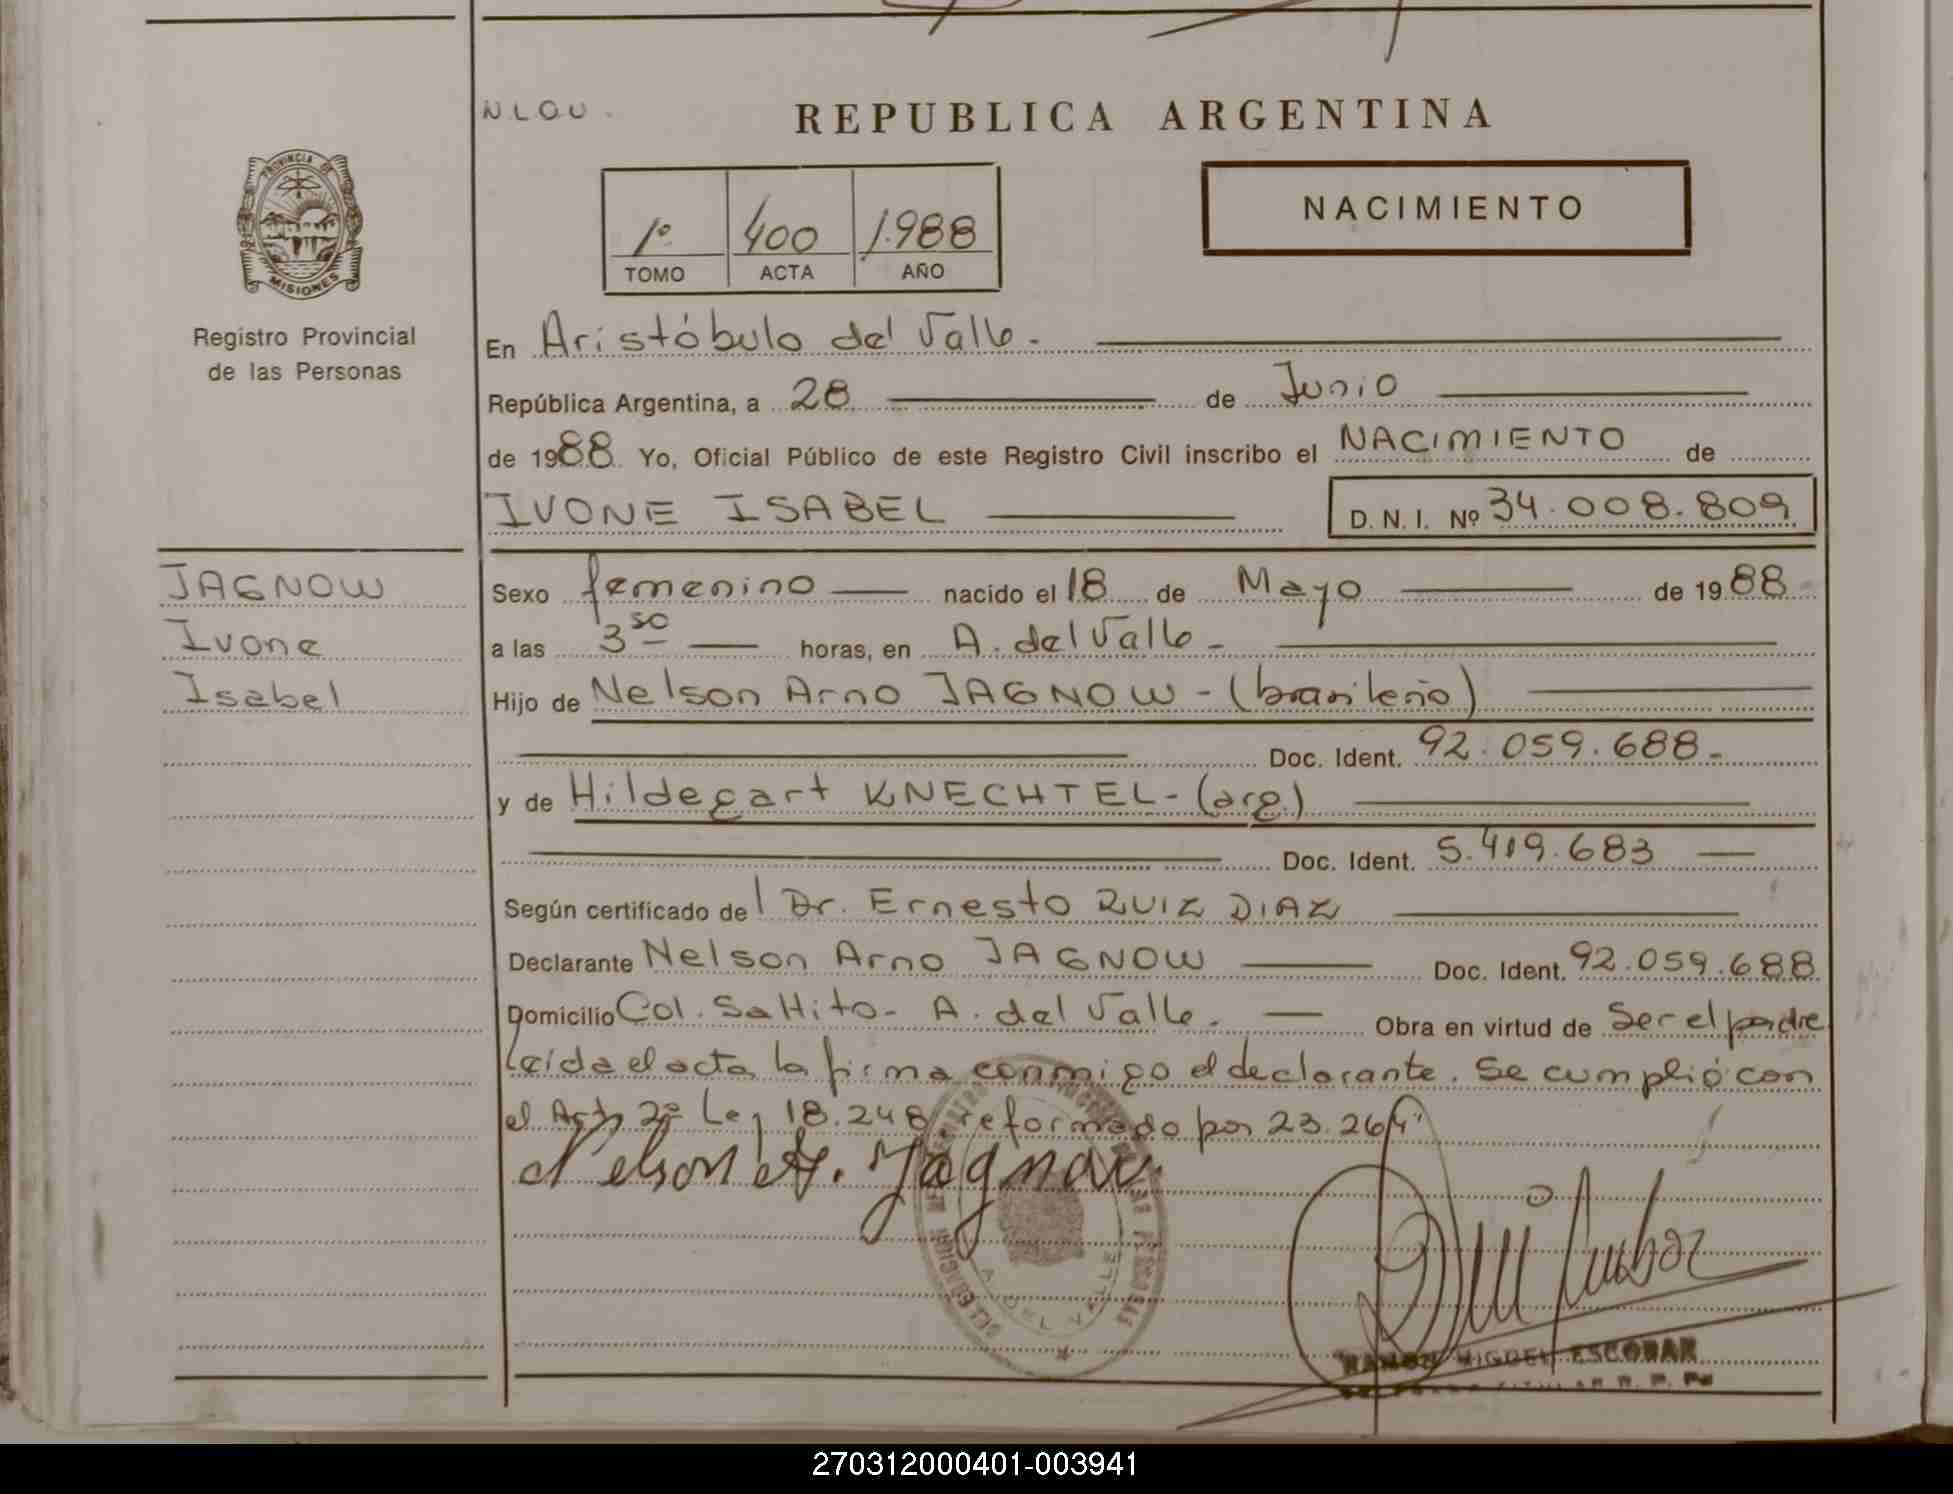 N.L.O.U.
REPUBLICA ARGENTINA
PROVINCIA DE
MISIONES
Registro Provincial
de las Personas
NACIMIENTO
1º 400 1.988
TOMO ACTA AÑO
En Aristóbulo del Valle.
República Argentina, a 28 de Junio
de 1988. Yo, Oficial Público de este Registro Civil inscribo el NACIMIENTO de
IVONE ISABEL D.N.I. Nº 34.008.809
JAGNOW
Ivone
Isabel
Sexo femenino nacido el 18 de Mayo de 1988
a las 3 50 horas, en A. del Valle -
Hijo de Nelson Arno JAGNOW - (brasileño)
Doc. Ident. 92.059.688.-
y de Hildegart KNECHTEL - (arg.)
Doc. Ident. 5.419.683
Según certificado del Dr. Ernesto RUIZ DIAZ
Declarante Nelson Arno JAGNOW Doc. Ident. 92.059.688
Domicilio Col. Saltito - A. del Valle. Obra en virtud de Ser el padre
Leída el acta la firma conmigo el declarante. Se cumplió con
el Art. 2º Ley 18.248 reformado por 23.264
Nelson A. Jagnow
A. DEL VALLE
RAMON MIGUEL ESCOBAR
270312000401-003941